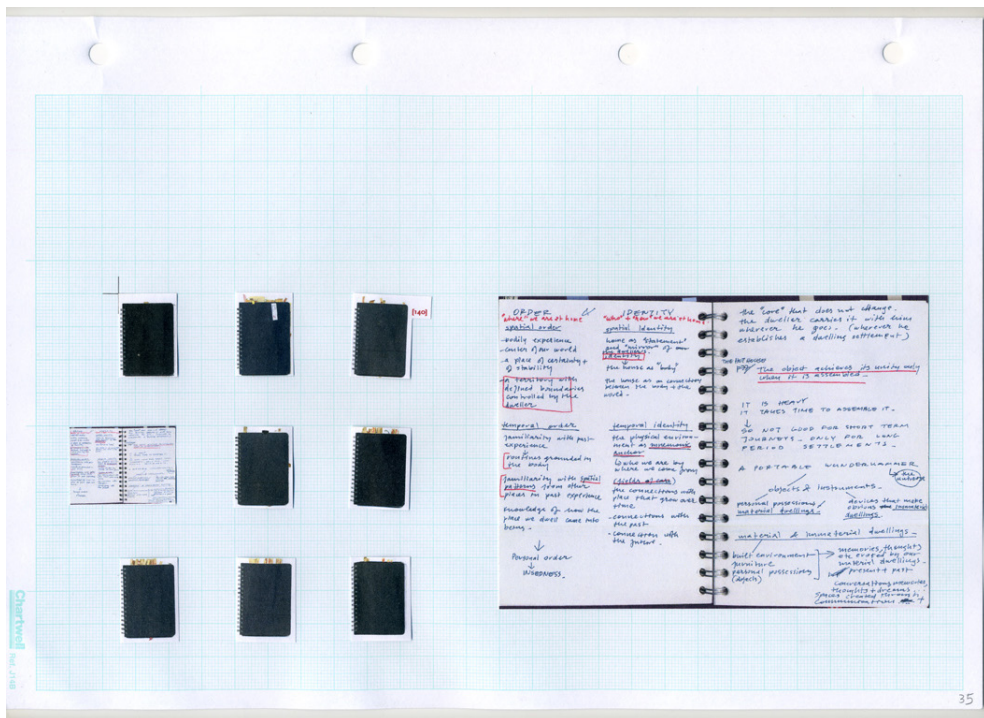 [140]
ORDER
"where" we are at home
spatial order
- bodily experience
- center of our world
- a place of certainty +
of stability
- a territory with
defined boundaries
controlled by the
dweller
temporal order
familiarity with past
experience
routines grounded in
the body
familiarity with spatial
patterns from other
places in past experience
knowledge of how the
place we dwell came into
being.
Personal order
INNERNESS.
IDENTITY
spatial identity
home as "statement"
and "mirror" of
identity
the house as "body"
the house as an
between the body + the
world.
temporal identity
the physical environ-
ment as mnemonic
anchor
who we are by
where we come from
the connections with
place that grow over
time
- connections with
the past
- connection with
the future.
the "core" that does not change.
the dweller carries it with him
wherever he goes. (wherever he
establishes a dwelling settlement)
The object achieves its unity only
when it is assembled.
IT IS HEAVY
IT TAKES TIME TO ASSEMBLE IT.
SO NOT GOOD FOR SHORT TERM
JOURNEYS - ONLY FOR LONG
PERIOD SETTLEMENTS.
A PORTABLE WUNDERKAMMER
objects & instruments.
personal possessions
material dwellings.
devices that make
obvious immaterial
dwellings
material & immaterial dwellings.
built environment
furniture
personal possessions
(objects)
memories, thoughts
etc evoked by our
material dwellings.
present + past
conversations memories,
thoughts + dreams.
spaces created through
communication +
Chartwell
35